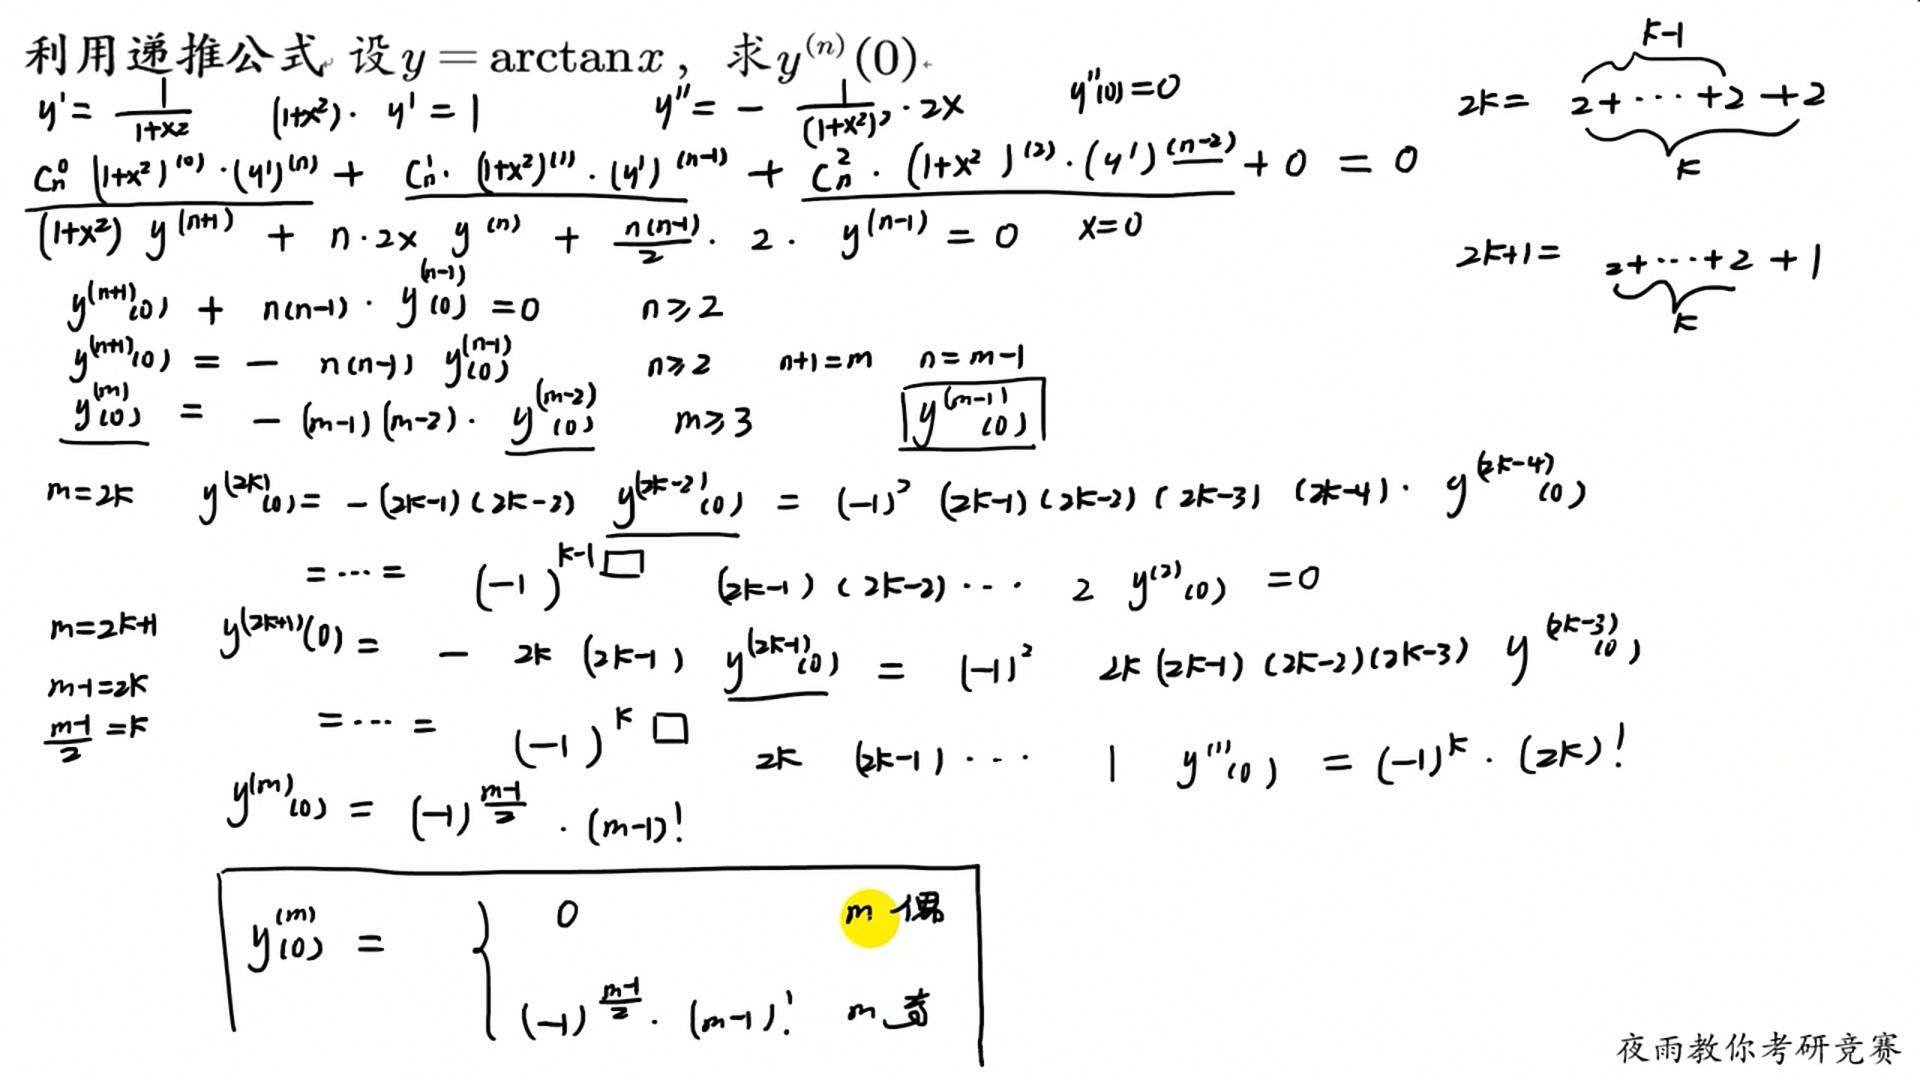 利用递推公式 设y=arctanx，求y^(n)(0)
y'= 1/(1+x²)  (1+x²)·y'=1  y''= - 1/(1+x²)²·2x  y''(0)=0
C_n^0 (1+x²)^(0)·(y')^(n) + C_n^1·(1+x²)^(1)·(y')^(n-1) + C_n^2·(1+x²)^(2)·(y')^(n-2) + 0 = 0
(1+x²) y^(n+1) + n·2x y^(n) + n(n-1)/2·2·y^(n-1) = 0  x=0
y^(n+1)(0) + n(n-1)·y^(n-1)(0) = 0  n≥2
y^(n+1)(0) = - n(n-1) y^(n-1)(0)  n≥2  n+1=m  n=m-1
y^(m)(0) = - (m-1)(m-2)·y^(m-2)(0)  m≥3  y^(m-1)(0)
m=2k  y^(2k)(0) = -(2k-1)(2k-2) y^(2k-2)(0) = (-1)² (2k-1)(2k-2)(2k-3)(2k-4)·y^(2k-4)(0)
=⋯= (-1)^(k-1) □ (2k-1)(2k-2)⋯ 2 y^(2)(0) = 0
m=2k+1  y^(2k+1)(0) = - 2k (2k-1) y^(2k-1)(0) = (-1)² 2k(2k-1)(2k-2)(2k-3) y^(2k-3)(0)
m-1=2k
(m-1)/2=k  =⋯= (-1)^k □ 2k (2k-1)⋯ 1 y^(1)(0) = (-1)^k·(2k)!
y^(m)(0) = (-1)^((m-1)/2)·(m-1)!
y^(m)(0) = { 0  m 偶
(-1)^((m-1)/2)·(m-1)!  m 奇
k-1
2k= 2+⋯+2+2
k
2k+1= 2+⋯+2+1
k
夜雨教你考研竞赛